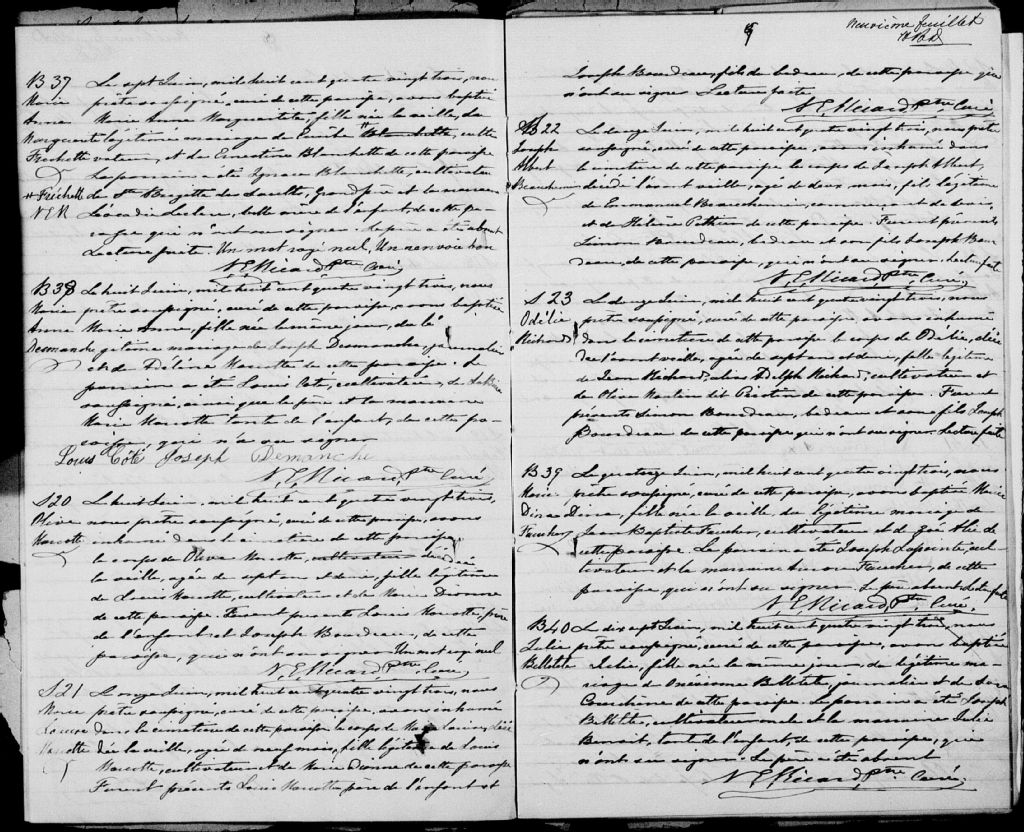 B 37 Le sept Juin, mil huit cent quatre vingt trois, nous
Marie prêtre soussigné, curé de cette paroisse, avons baptisé
Anne Marie Anne Marguerite, fille née la veille, du
Marguerite légitime mariage de # Blanchette, culti
Fréchette vateur, et de Ernestine Blanchette de cette paroisse
Le parrain a été Ignace Blanchette, cultivateur
# Fréchette de Ste Brigitte des Saults, Grand père et la marraine
N.E.R Léocadie Leclerc, belle mère de l'enfant, de cette pa
roisse qui n'ont su signer. Le père a été absent
Lecture faite. Un mot rayé nul. Un renvoi bon
N.E. Ricard Ptre Curé
B 38 Le huit Juin, mil huit cent quatre vingt trois, nous
Marie prêtre soussigné, curé de cette paroisse, avons baptisé
Anne Marie Anne, fille née le même jour, du lé
Desmanche gitime mariage de Joseph Desmanche, journalier
et de Marcotte de cette paroisse. Le
parrain a été Louis Coté, cultivateur,
soussigné, ainsi que le père et la marraine
Marie Marcotte tante de l'enfant, de cette pa
roisse, qui n'a su signer
Louis Côté Joseph Demanche
N.E. Ricard, Ptre Curé
S 20 Le huit Juin, mil huit cent quatre vingt trois,
Olive nous prêtre soussigné, curé de cette paroisse, avons
Marcotte inhumé dans le cimetière de cette paroisse
le corps de Olive Marcotte, cultivateur décédée
la veille, agée de sept ans et demi, fille légitime
de Louis Marcotte, cultivateur et de Marie Dionne
de cette paroisse. Furent présents Louis Marcotte, père
de l'enfant et Joseph Bourdeau, de cette
paroisse, qui n'ont su signer. Un mot rayé nul
N.E. Ricard Ptre Curé
S 21 Le onze Juin, mil huit cent quatre vingt trois, nous
Marie prêtre soussigné, curé de cette paroisse, avons inhumé
Louise dans le cimetière de cette paroisse le corps de Marie Louise, décé
Marcotte dée la veille, agée de neuf mois, fille légitime de Louis
Marcotte, cultivateur et de Marie Dionne de cette paroisse
Furent présents Louis Marcotte père de l'enfant et
9
neuvième feuillet
Joseph Bourdeau, fils de bedeau, de cette paroisse qui
n'ont su signer Lecture faite
N.E. Ricard Ptre Curé
B 22 Le douze Juin, mil huit cent quatre vingt trois, nous prêtre
Joseph soussigné, curé de cette paroisse, avons inhumé dans
Albert le cimetière de cette paroisse le corps de Joseph Albert,
Beauchemin décédé l'avant veille, agé de deux mois, fils légitime
de Emmanuel Beauchemin,
et de Hélène de cette paroisse. Furent présents
Simon Bourdeau, bedeau et son fils Joseph Bour
deau, de cette paroisse, qui n'ont su signer. Lecture faite
N.E. Ricard, Ptre Curé
S 23 Le douze Juin, mil huit cent quatre vingt trois, nous
Odélie prêtre soussigné, curé de cette paroisse avons inhumé
Richard dans le cimetière de cette paroisse le corps de Odélie, décé
dée l'avant veille, agée de sept ans et demi, fille légitime
de Jean Richard, alias Adolph Richard, cultivateur et
de Olive Martin dit de cette paroisse. Furent
présents Simon Bourdeau, bedeau et son fils Joseph
Bourdeau de cette paroisse qui n'ont su signer. Lecture faite
B 39 Le quatorze Juin, mil huit cent quatre vingt trois, nous
Marie prêtre soussigné, curé de cette paroisse, avons baptisé Marie
Diana Diana, fille née la veille, du légitime mariage de
Faucher Jean Baptiste Faucher, cultivateur et de de
cette paroisse. Le parrain a été Joseph Lapointe, cul
tivateur et la marraine Faucher, de cette
paroisse, qui n'ont su signer. Le père absent Lecture faite
N.E. Ricard, Ptre Curé.
B 40 Le dix sept Juin, mil huit cent quatre vingt trois, nous
Julie prêtre soussigné, curé de cette paroisse, avons baptisé
Belletête Julie, fille née le même jour, du légitime ma
riage de Onésime Belletête, journalier et de
de cette paroisse. Le parrain a été Joseph
Belletête, cultivateur oncle et la marraine Julie
Benoit, tante de l'enfant, de cette paroisse, qui
n'ont su signer. Le père a été absent
N.E. Ricard, Ptre Curé